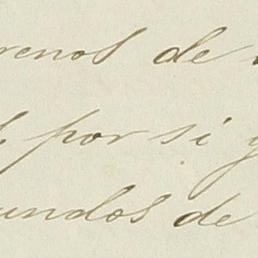 renos de
por si y
undos de